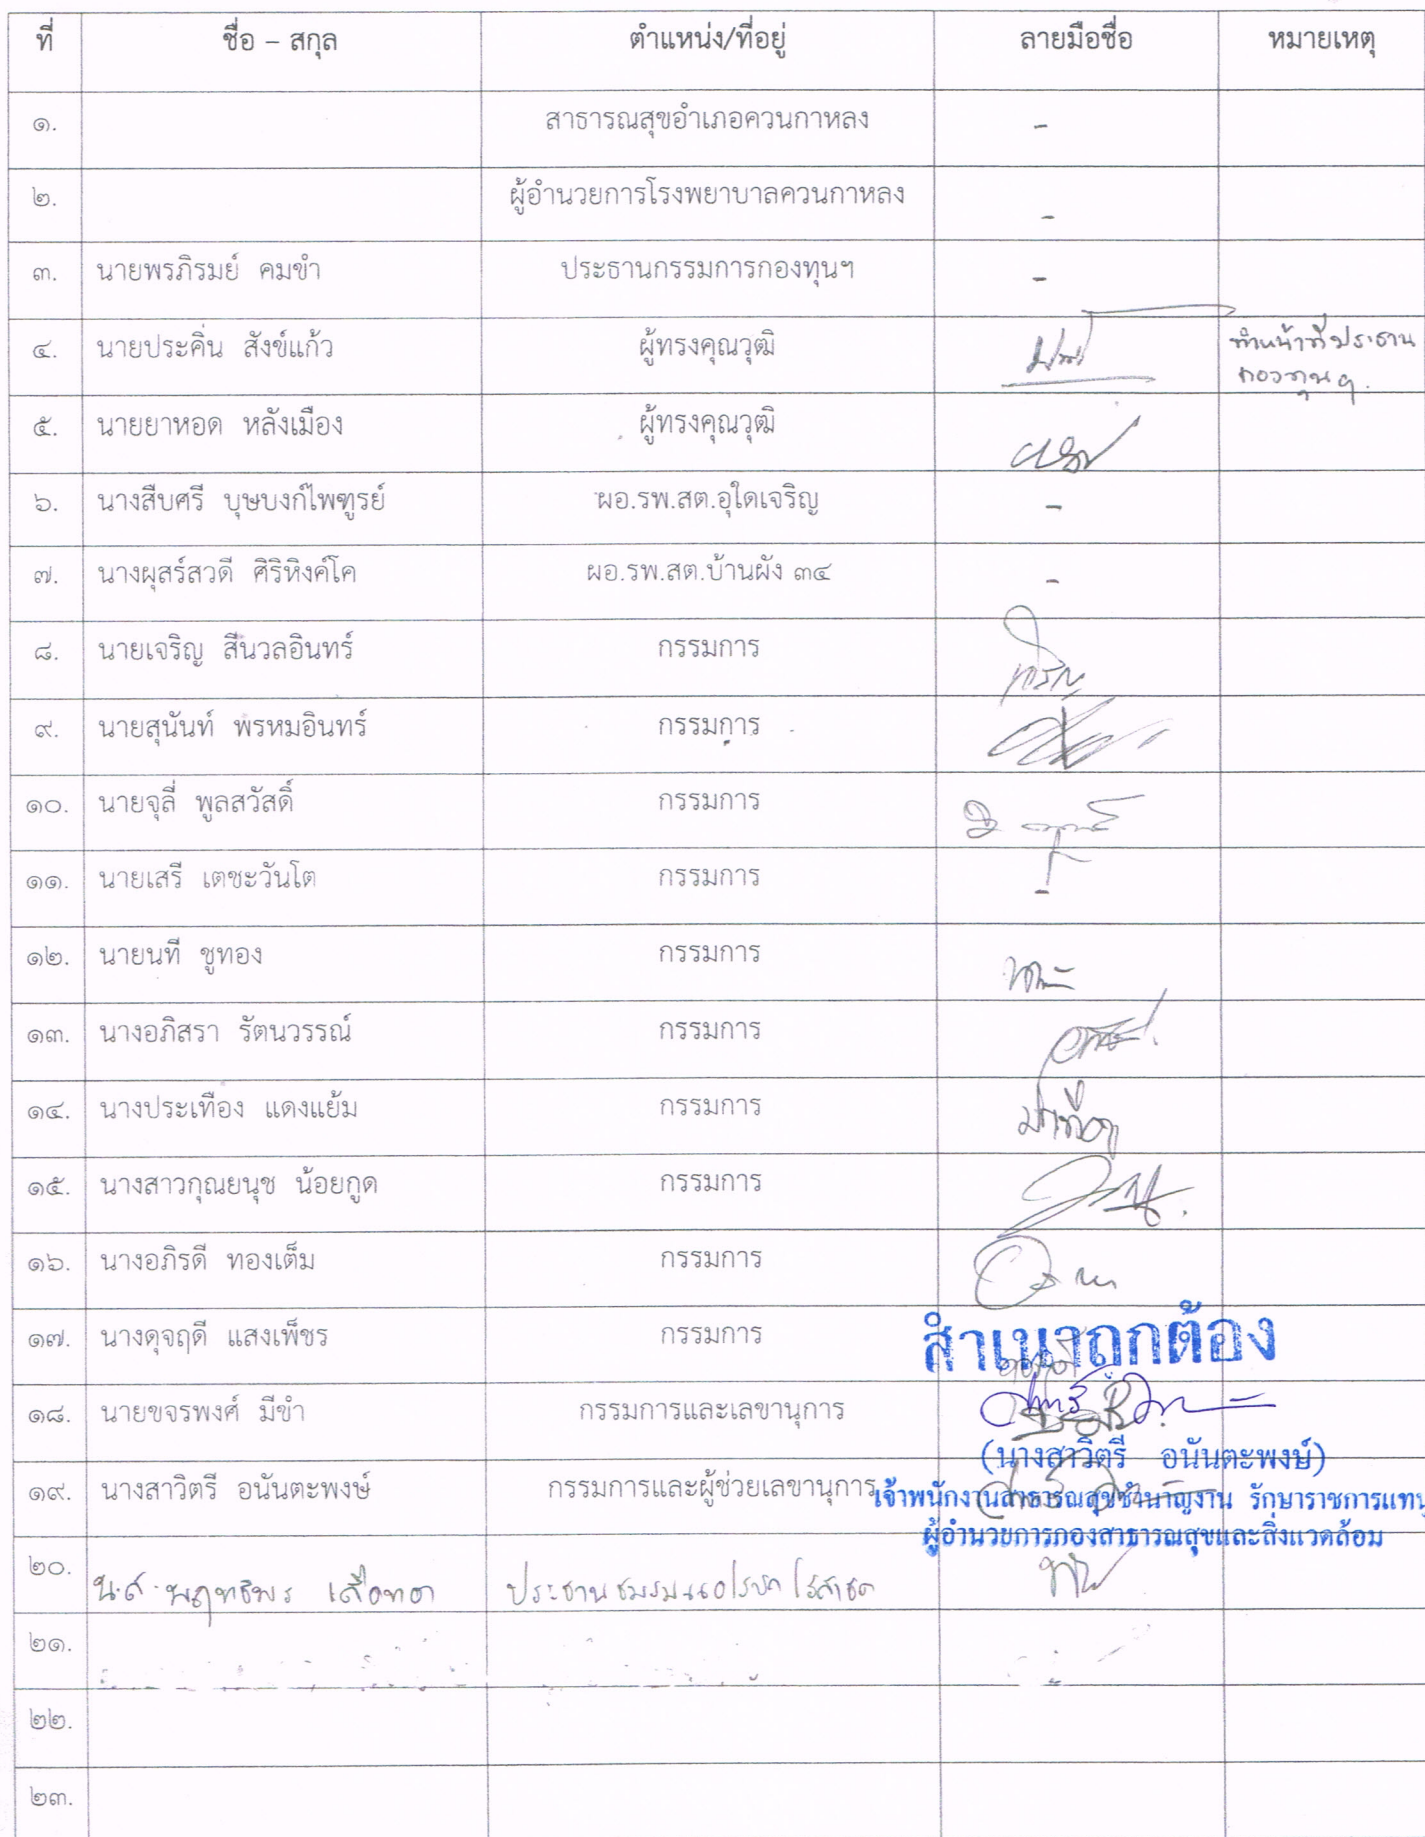 ที่ ชื่อ – สกุล ตำแหน่ง/ที่อยู่ ลายมือชื่อ หมายเหตุ
๑. สาธารณสุขอำเภอควนกาหลง -
๒. ผู้อำนวยการโรงพยาบาลควนกาหลง -
๓. นายพรภิรมย์ คมขำ ประธานกรรมการกองทุนฯ -
๔. นายประคิ่น สังข์แก้ว ผู้ทรงคุณวุฒิ ทำหน้าที่ประธาน
กองทุนฯ
๕. นายยาหอด หลังเมือง ผู้ทรงคุณวุฒิ
๖. นางสืบศรี บุษบงก์ไพฑูรย์ ผอ.รพ.สต.อุใดเจริญ -
๗. นางผุสร์สวดี ศิริหิงค์โค ผอ.รพ.สต.บ้านผัง ๓๔ -
๘. นายเจริญ สีนวลอินทร์ กรรมการ เจริญ
๙. นายสุนันท์ พรหมอินทร์ กรรมการ
๑๐. นายจุลี่ พูลสวัสดิ์ กรรมการ
๑๑. นายเสรี เตชะวันโต กรรมการ -
๑๒. นายนที ชูทอง กรรมการ
๑๓. นางอภิสรา รัตนวรรณ์ กรรมการ
๑๔. นางประเทือง แดงแย้ม กรรมการ
๑๕. นางสาวกุณยนุช น้อยกูด กรรมการ
๑๖. นางอภิรดี ทองเต็ม กรรมการ
๑๗. นางดุจฤดี แสงเพ็ชร กรรมการ
สำเนาถูกต้อง
๑๘. นายขจรพงศ์ มีขำ กรรมการและเลขานุการ
(นางสาวิตรี อนันตะพงษ์)
๑๙. นางสาวิตรี อนันตะพงษ์ กรรมการและผู้ช่วยเลขานุการ
เจ้าพนักงานสาธารณสุขชำนาญงาน รักษาราชการแทน
ผู้อำนวยการกองสาธารณสุขและสิ่งแวดล้อม
๒๐. น.ส. พฤทธิพร ประธานชมรม
๒๑.
๒๒.
๒๓.